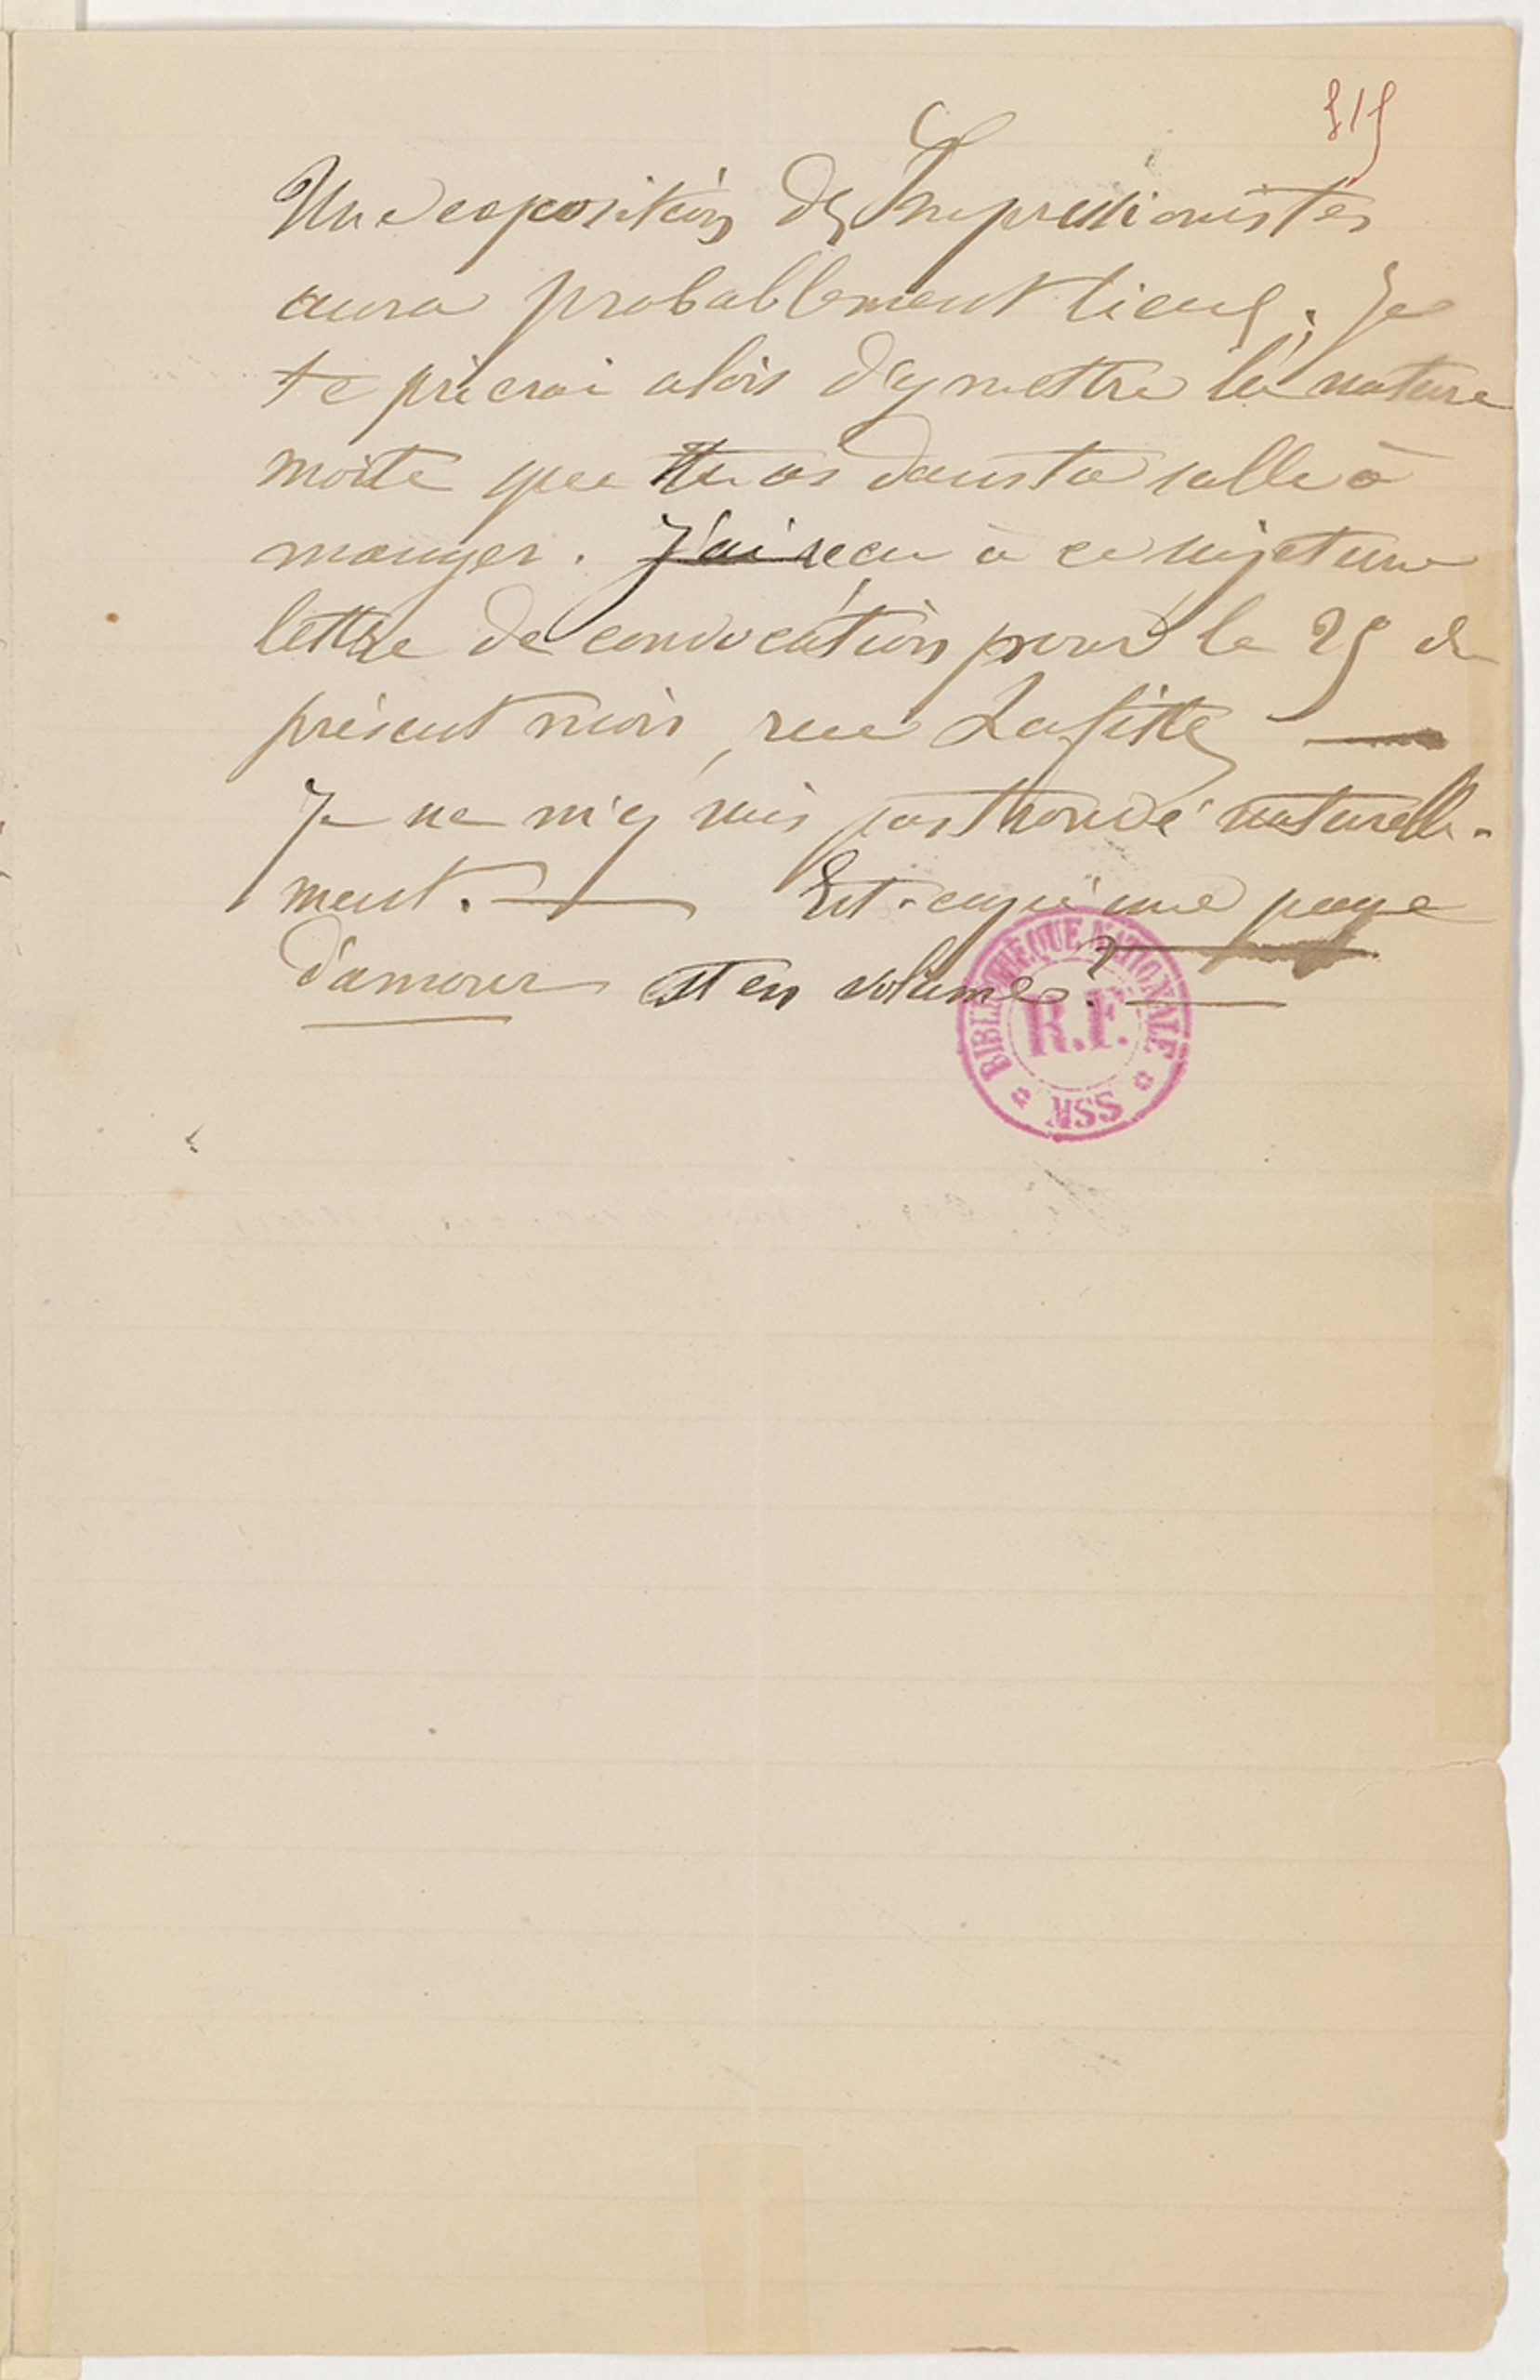 315
Une exposition des Impressionistes
aura probablement lieu ; Je
te prierai alors d'y mettre la nature
morte que tu as dans ta salle à
manger. J'ai reçu à ce sujet une
lettre de convocation pour le 25 du
présent mois, rue Lafitte —
Je ne m'y suis pas trouvé naturelle-
ment. — Est-ce que une page
d'amour est en volume ? —
BIBLIOTHÈQUE NATIONALE
R.F.
MSS